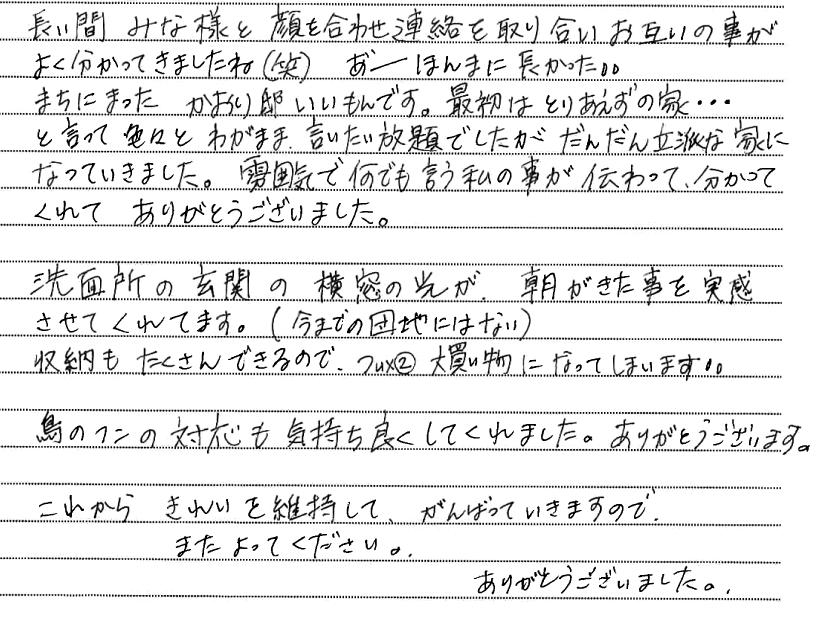 長い間 みな様と 顔を合わせ連絡を取り合い お互いの事が
よく分かってきましたね(笑) あーほんまに長かった。。
まちにまった かおり邸 いいもんです。最初は とりあえずの家・・・
と言って 色々と わがまま、言いたい放題でしたが だんだん立派な 家に
なっていきました。雰囲気で何でも言う私の事が 伝わって、分かって
くれて ありがとうございました。
洗面所の 玄関の 横窓の光が、朝がきた事を実感
させてくれてます。(今までの団地にはない)
収納も たくさんできるので、ついつい② 大買い物になってしまいます。。
鳥のフンの対応も 気持ち良くしてくれました。ありがとうございます。
これから きれいを維持して、がんばっていきますので、
また よってください。
ありがとうございました。